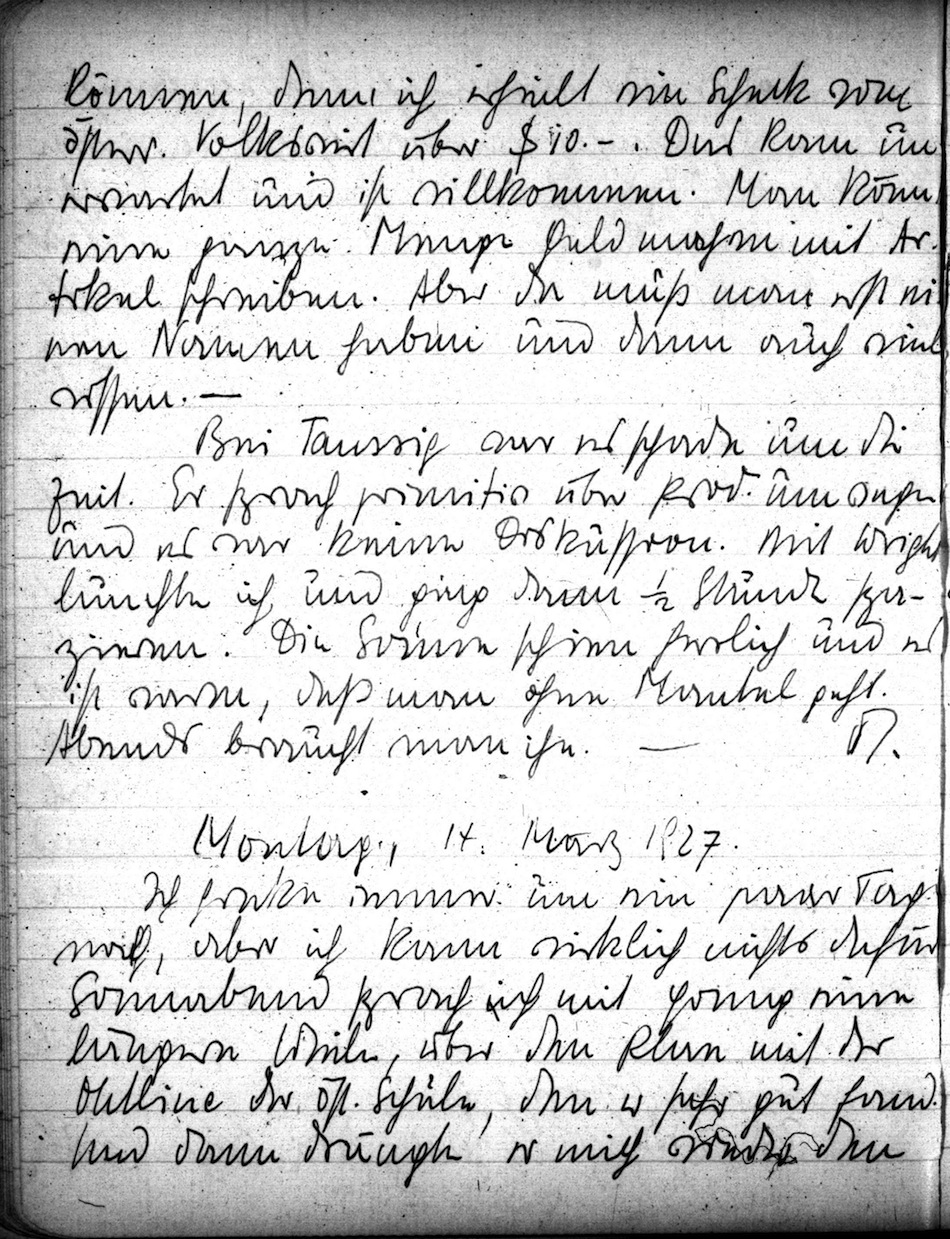 können, denn ich erhielt ein Scheck vom
österr. Volkswirt über $ 10.-. Das kam un
erwartet und ist willkommen. Man könn
eine ganze Menge Geld machen mit Ar-
tikel schreiben. Aber da muß man erst ei
nen Namen haben und dann auch viel
wissen. —
Bei Taussig war es schade um die
Zeit. Er sprach primitiv über Prod. und
und es war keine Diskussion. Mit Wright
lunchte ich und ging dann ½ Stunde spa-
zieren. Die Sonne schien herrlich und es
ist warm, daß man ohne Mantel geht.
Abends braucht man ihn. —
Montag, 14. März 1927.
Ich hinke immer um ein paar Tage
nach, aber ich kann wirklich nichts dafür
Sonnabend sprach ich mit Young eine
längere Weile, über den Plan mit der
Outline der öst. Schule, den er sehr gut fand.
Und dann drängte er mich wieder den